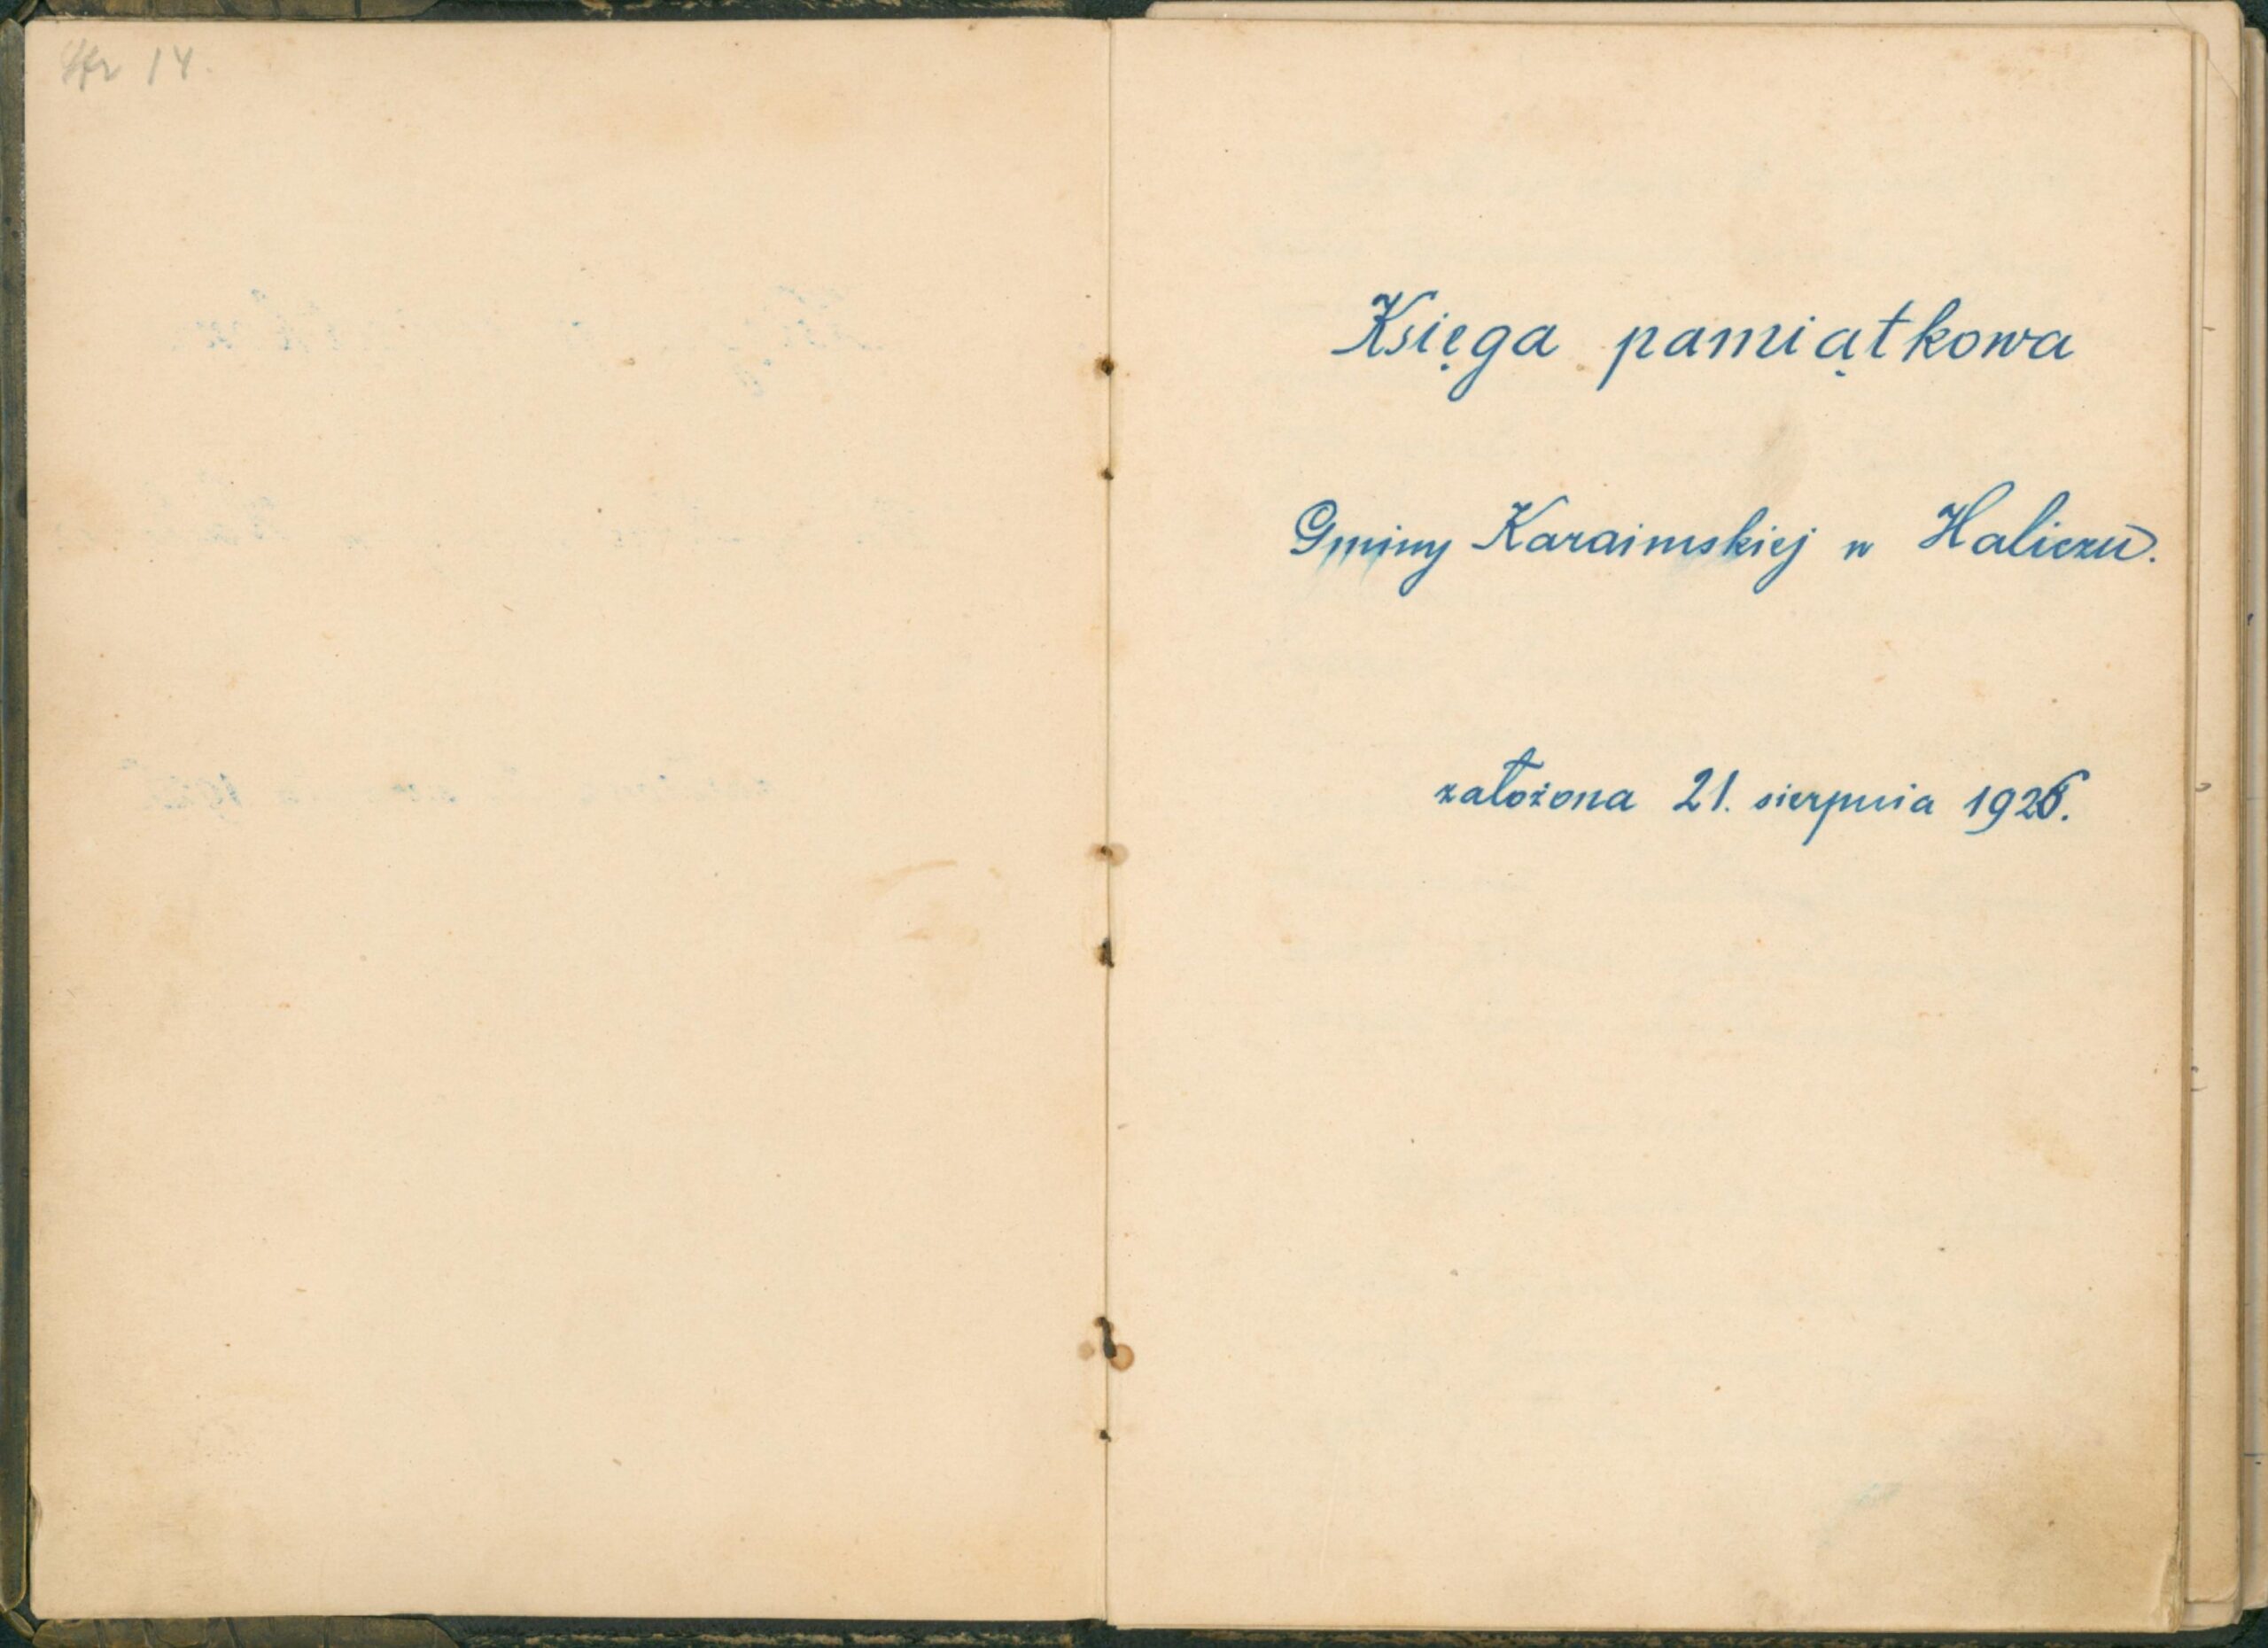 14
Księga pamiątkowa
Gminy Karaimskiej w Haliczu.
założona 21. sierpnia 1926.